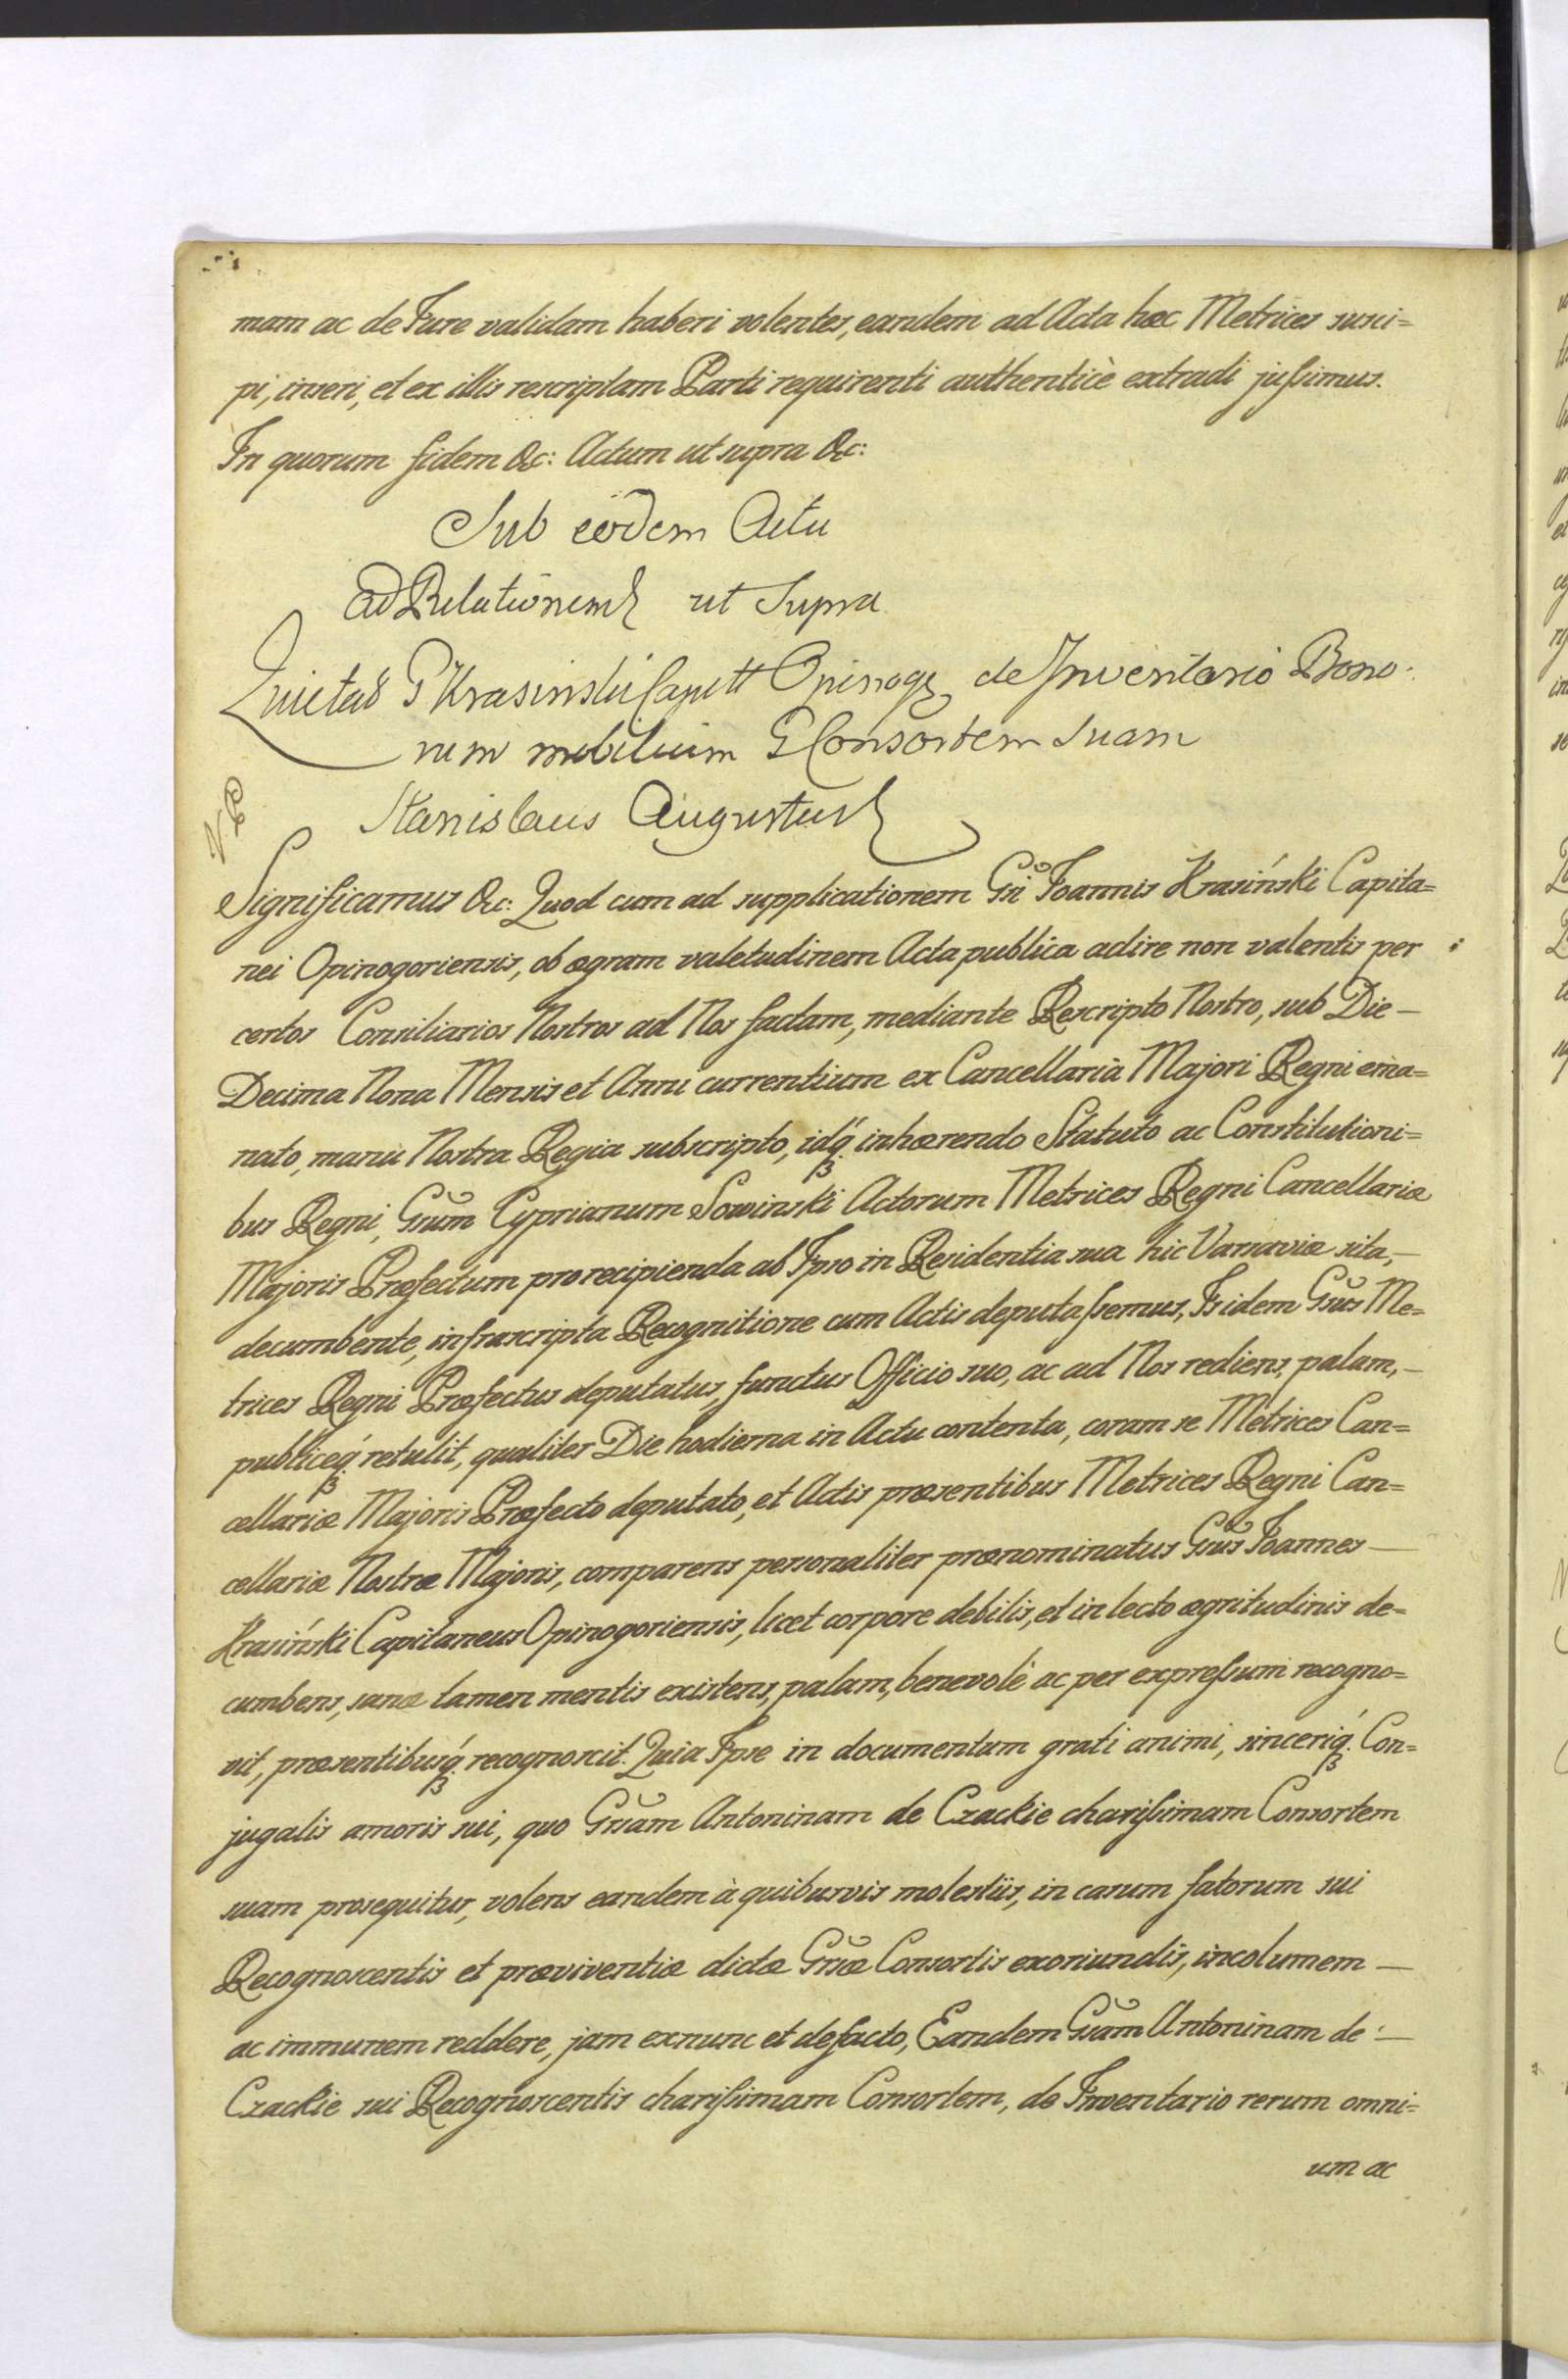 mam ac de Jure validam haberi volentes, eandem ad Acta hæc Metrices susci=
pi, inseri, et ex illis rescriptam Parti requirenti authenticè extradi jussimus.
In quorum fidem &c: Actum ut supra &c:
Sub eodem Actu
Ad Relationem ut Supra
Quietat G Krasinski Capett Opinogs de Inventario Bono-
rum mobilium G Consortem Suam
Stanislaus Augustus
Significamus &c: Quod cum ad supplicationem Gsi Joannis Krasiński Capita=
nei Opinogoriensis, ob ægram valetudinem Acta publica adire non valentis per
certos Consiliarios Nostros ad Nos factam, mediante Rescripto Nostro, sub Die —
Decima Nona Mensis et Anni currentium ex Cancellariâ Majori Regni ema=
nato, manu Nostra Regia subscripto, idq́ inhærendo Statuto ac Constitutioni=
bus Regni, Gsum Cyprianum Sowinski Actorum Metrices Regni Cancellariæ
Majoris Præfectum pro recipienda ab Ipso in Residentia sua hic Varsaviæ sita, —
decumbente, infrascripta Recognitione cum Actis deputassemus, Is idem Gsus Me=
trices Regni Præfectus deputatus, functus Officio suo, ac ad Nos rediens, palam, —
publiceq́ retulit, qualiter Die hodierna in Actu contenta, coram se Metrices Can=
cellariæ Majoris Præfecto deputato, et Actis præsentibus Metrices Regni Can=
cellariæ Nostræ Majoris, comparens personaliter prænominatus Gsus Joannes —
Krasiński Capitaneus Opinogoriensis, licet corpore debilis, et in lecto ægritudinis de=
cumbens, sanæ tamen mentis existens, palam, benevolè ac per expressum recogno=
vit, præsentibusq́ recognoscit. Quia Ipse in documentum grati animi, sinceriq́ Con=
jugalis amoris sui, quo Gsam Antoninam de Czackie charissimam Consortem
suam prosequitur, volens eandem à quibusvis molestiis, in casum fatorum sui
Recognoscentis et præviventiæ dictæ Gsæ Consortis exoriundis, incolumem —
ac immunem reddere, jam exnunc et defacto, Eandem Gsam Antoninam de —
Czackie sui Recognoscentis charissimam Consortem, de Inventario rerum omni=
um ac